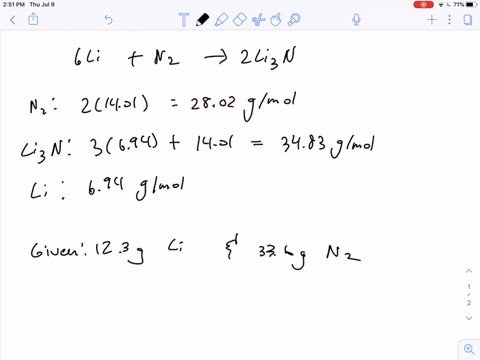 2:51 PM Thu Jul 9
71%
6Li + N2 → 2Li3N
N2: 2(14.01) = 28.02 g/mol
Li3N: 3(6.94) + 14.01 = 34.83 g/mol
Li: 6.94 g/mol
Given: 12.3g Li & 33.6g N2
1
/
2